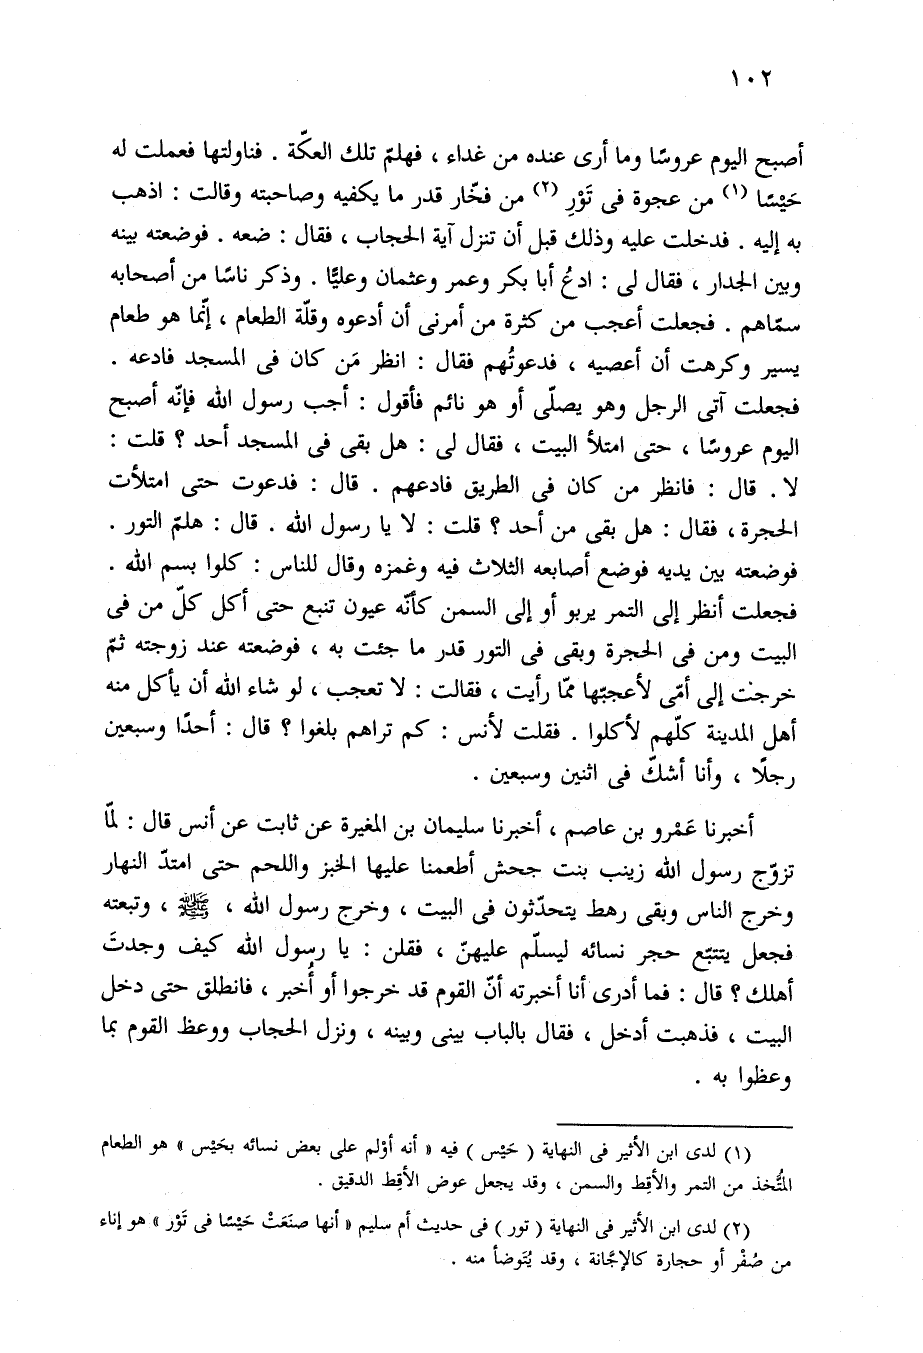 ١٠٢
أصبح اليوم عروسًا وما أرى عنده من غداء ، فهلمّ تلك العكّة . فناولتها فعملت له
حَيْسًا (١) من عجوة فى تَوْرٍ (٢) من فخّار قدر ما يكفيه وصاحبته وقالت : اذهب
به إليه . فدخلت عليه وذلك قبل أن تنزل آية الحجاب ، فقال : ضعه . فوضعته بينه
وبين الجدار ، فقال لى : ادعُ أبا بكر وعمر وعثمان وعليًّا . وذكر ناسًا من أصحابه
سمّاهم . فجعلت أعجب من كثرة من أمرنى أن أدعوه وقلّة الطعام ، إنّما هو طعام
يسير وكرهت أن أعصيه ، فدعوتُهم فقال : انظر مَن كان فى المسجد فادعه .
فجعلت آتى الرجل وهو يصلّى أو هو نائم فأقول : أجب رسول الله فإنّه أصبح
اليوم عروسًا ، حتى امتلأ البيت ، فقال لى : هل بقى فى المسجد أحد ؟ قلت :
لا . قال : فانظر من كان فى الطريق فادعهم . قال : فدعوت حتى امتلأت
الحجرة ، فقال : هل بقى من أحد ؟ قلت : لا يا رسول الله . قال : هلمّ التور .
فوضعته بين يديه فوضع أصابعه الثلاث فيه وغمزه وقال للناس : كلوا بسم الله .
فجعلت أنظر إلى التمر يربو أو إلى السمن كأنّه عيون تنبع حتى أكل كلّ من فى
البيت ومن فى الحجرة وبقى فى التور قدر ما جئت به ، فوضعته عند زوجته ثمّ
خرجت إلى أمّى لأعجبّها ممّا رأيت ، فقالت : لا تعجب ، لو شاء الله أن يأكل منه
أهل المدينة كلّهم لأكلوا . فقلت لأنس : كم تراهم بلغوا ؟ قال : أحدًا وسبعين
رجلًا ، وأنا أشكّ فى اثنين وسبعين .
أخبرنا عَمْرو بن عاصم ، أخبرنا سليمان بن المغيرة عن ثابت عن أنس قال : لمّا
تزوّج رسول الله زينب بنت جحش أطعمنا عليها الخبز واللحم حتى امتدّ النهار
وخرج الناس وبقى رهط يتحدّثون فى البيت ، وخرج رسول الله ، ﷺ ، وتبعته
فجعل يتتبّع حجر نسائه ليسلّم عليهنّ ، فقلن : يا رسول الله كيف وجدتَ
أهلك ؟ قال : فما أدرى أنا أخبرته أنّ القوم قد خرجوا أو أُخبر ، فانطلق حتى دخل
البيت ، فذهبت أدخل ، فقال بالباب بينى وبينه ، ونزل الحجاب ووعظ القوم بما
وعظوا به .
(١) لدى ابن الأثير فى النهاية ( حَيْس ) فيه « أنه أوْلم على بعض نسائه بحَيْس » هو الطعام
المُتَّخذ من التمر والأقِط والسمن ، وقد يجعل عوض الأقِط الدقيق .
(٢) لدى ابن الأثير فى النهاية ( تور ) فى حديث أم سليم « أنها صنَعَتْ حَيْسًا فى تَوْر » هو إناء
من صُفْر أو حجارة كالإجَّانة ، وقد يُتَوضأ منه .